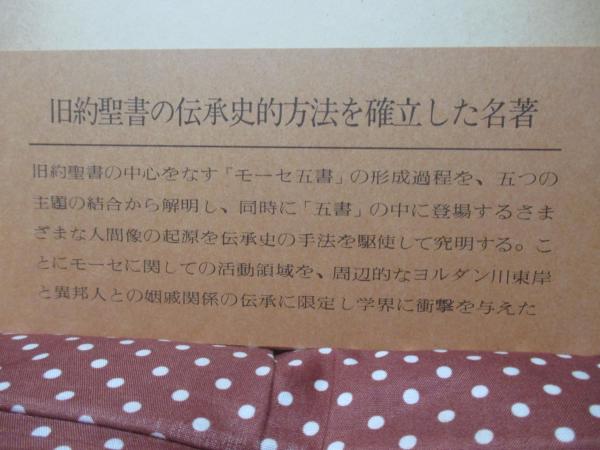 旧約聖書の伝承史的方法を確立した名著
旧約聖書の中心をなす「モーセ五書」の形成過程を、五つの
主題の結合から解明し、同時に「五書」の中に登場するさま
ざまな人間像の起源を伝承史の手法を駆使して究明する。こ
とにモーセに関しての活動領域を、周辺的なヨルダン川東岸
と異邦人との姻戚関係の伝承に限定し学界に衝撃を与えた